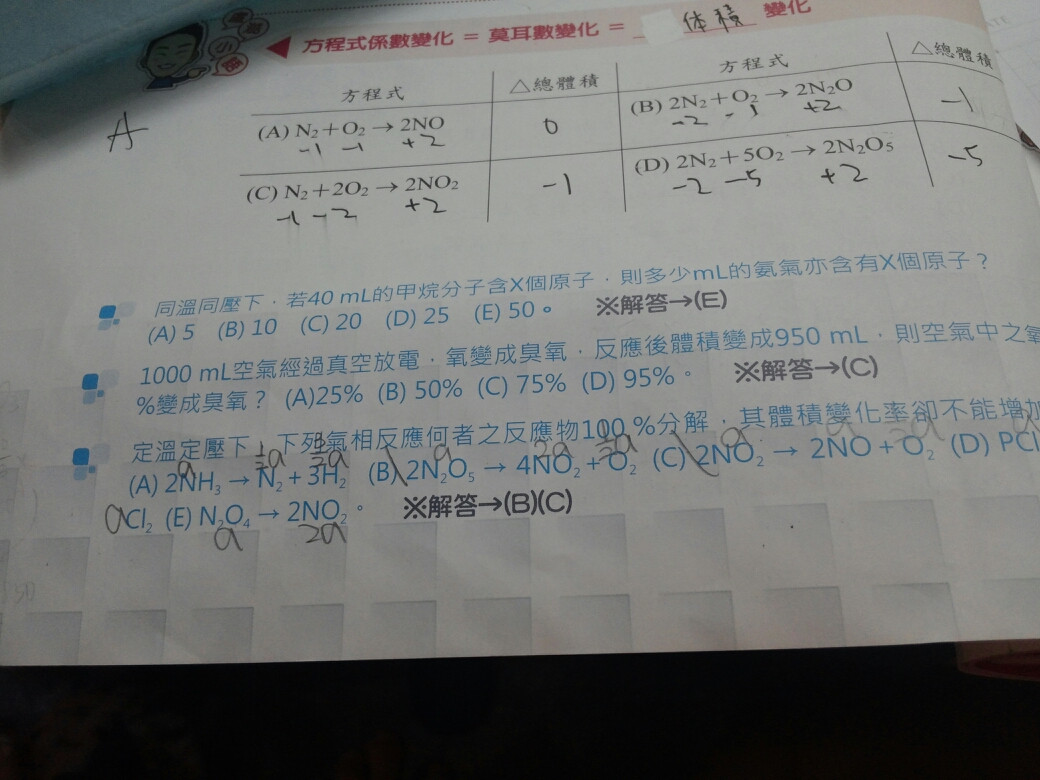 方程式係數變化 = 莫耳數變化 = 体積 變化
方程式 △總體積 方程式 △總體積
A
(A) N₂ + O₂ → 2NO 0 (B) 2N₂ + O₂ → 2N₂O -1
-1 -1 +2 -2 -1 +2
(C) N₂ + 2O₂ → 2NO₂ -1 (D) 2N₂ + 5O₂ → 2N₂O₅ -5
-1 -2 +2 -2 -5 +2
同溫同壓下，若40 mL的甲烷分子含X個原子，則多少mL的氨氣亦含有X個原子？
(A) 5 (B) 10 (C) 20 (D) 25 (E) 50。 ※解答→(E)
1000 mL空氣經過真空放電，氧變成臭氧，反應後體積變成950 mL，則空氣中之氧
%變成臭氧？ (A)25% (B) 50% (C) 75% (D) 95%。 ※解答→(C)
定溫定壓下，下列氣相反應何者之反應物100 %分解，其體積變化率卻不能增加
a ½a 3/2a a 2a ½a a a ½a a
(A) 2NH₃ → N₂ + 3H₂ (B) 2N₂O₅ → 4NO₂ + O₂ (C) 2NO₂ → 2NO + O₂ (D) PCl
a Cl₂ (E) N₂O₄ → 2NO₂。 ※解答→(B)(C)
a 2a